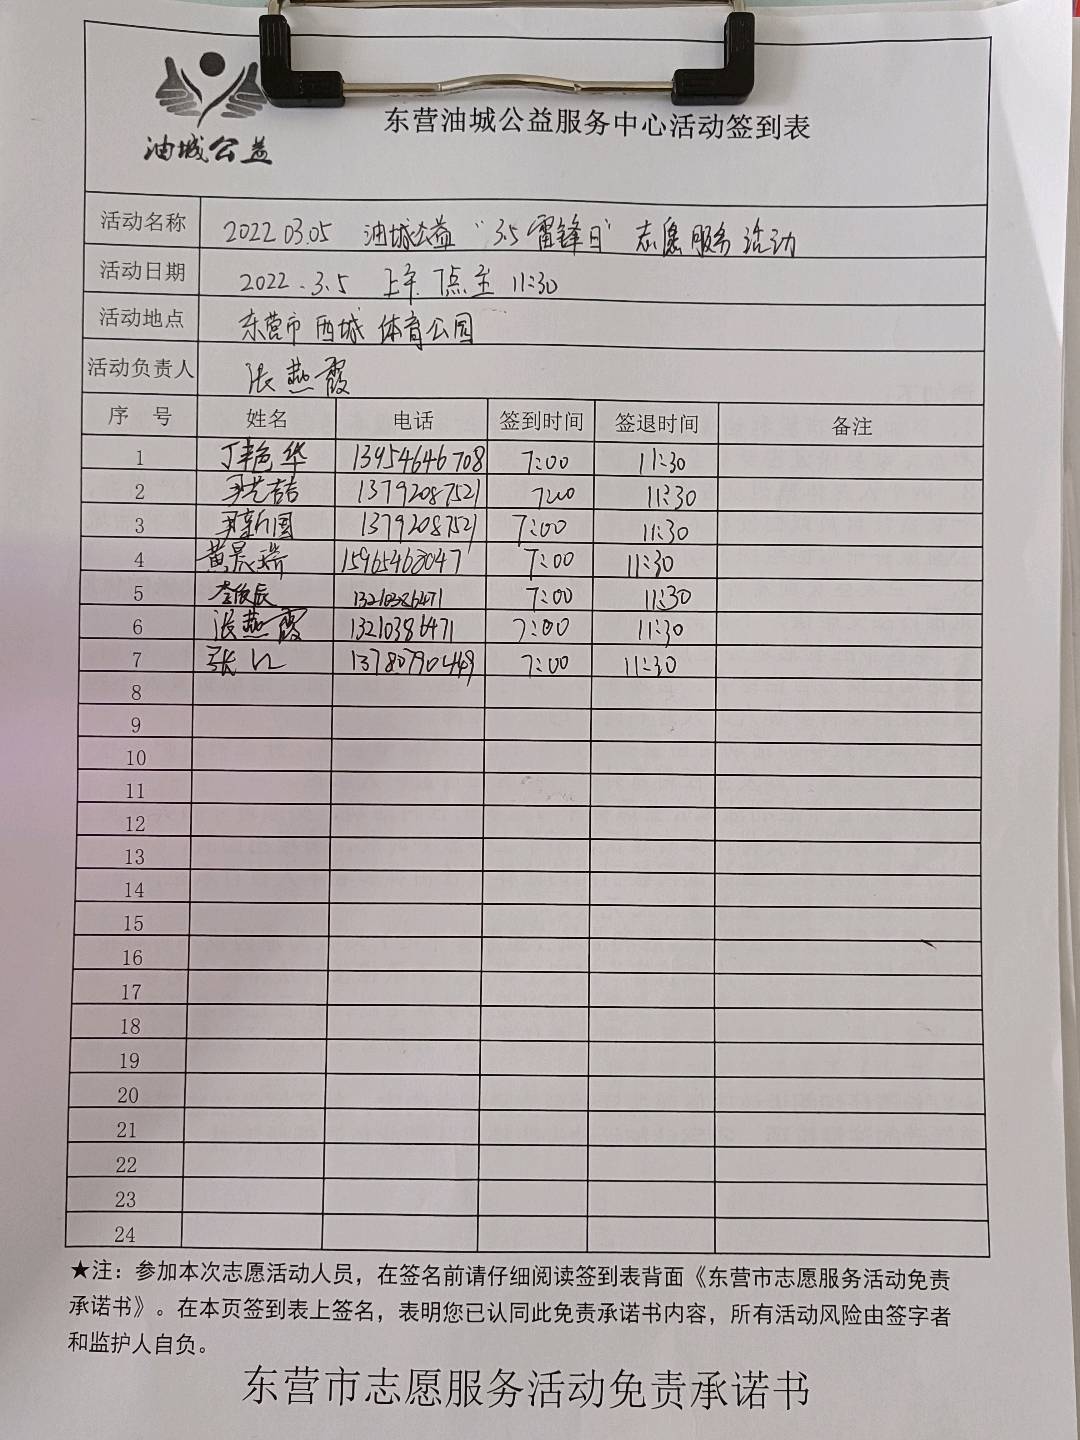 油城公益
东营油城公益服务中心活动签到表
活动名称 2022.03.05 油城公益“3.5雷锋日”志愿服务活动
活动日期 2022.3.5 上午7点至11:30
活动地点 东营市西城体育公园
活动负责人 张燕霞
序号 姓名 电话 签到时间 签退时间 备注
1 丁艳华 13954646708 7:00 11:30
2 13792087521 7:00 11:30
3 尹新国 13792087521 7:00 11:30
4 黄晨瑞 15965468047 7:00 11:30
5 13210386471 7:00 11:30
6 张燕霞 13210386471 7:00 11:30
7 张 13780790449 7:00 11:30
8
9
10
11
12
13
14
15
16
17
18
19
20
21
22
23
24
★注：参加本次志愿活动人员，在签名前请仔细阅读签到表背面《东营市志愿服务活动免责
承诺书》。在本页签到表上签名，表明您已认同此免责承诺书内容，所有活动风险由签字者
和监护人自负。
东营市志愿服务活动免责承诺书